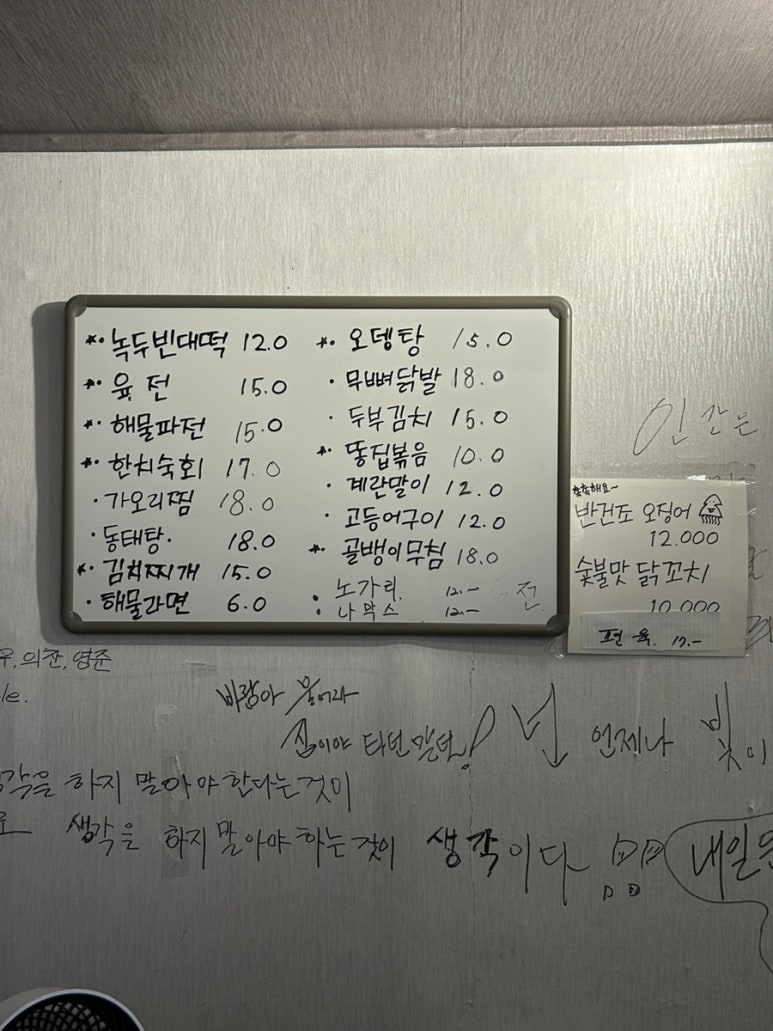 *· 녹두빈대떡 12.0
*· 육전 15.0
*· 해물파전 15.0
*· 한치숙회 17.0
· 가오리찜 18.0
· 동태탕· 18.0
*· 김치찌개 15.0
· 해물라면 6.0
*· 오뎅탕 15.0
· 무뼈닭발 18.0
· 두부김치 15.0
*· 똥집볶음 10.0
· 계란말이 12.0
· 고등어구이 12.0
*· 골뱅이무침 18.0
· 노가리. 12.-
· 나막스 12.-
전
촉촉해요~
반건조 오징어
12.000
숯불맛 닭꼬치
10.000
편육. 17.-
인간은
의찬, 영준
le.
바람아 불어라
집이야 타던말던!
넌 언제나 빛이
생각을 하지 말아야 한다는것이
생각을 하지말아야 하는것이 생각이다
내일은